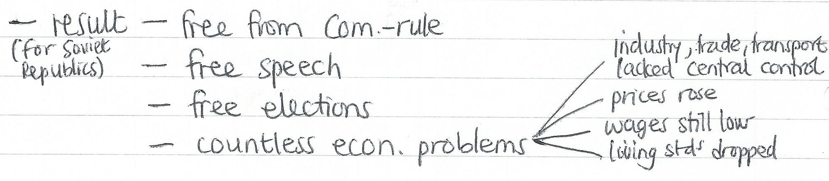 – result – free from Com.-rule
(for Soviet Republics)
– free speech
– free elections
– countless econ. problems
industry, trade, transport
lacked central control
prices rose
wages still low
living stds dropped